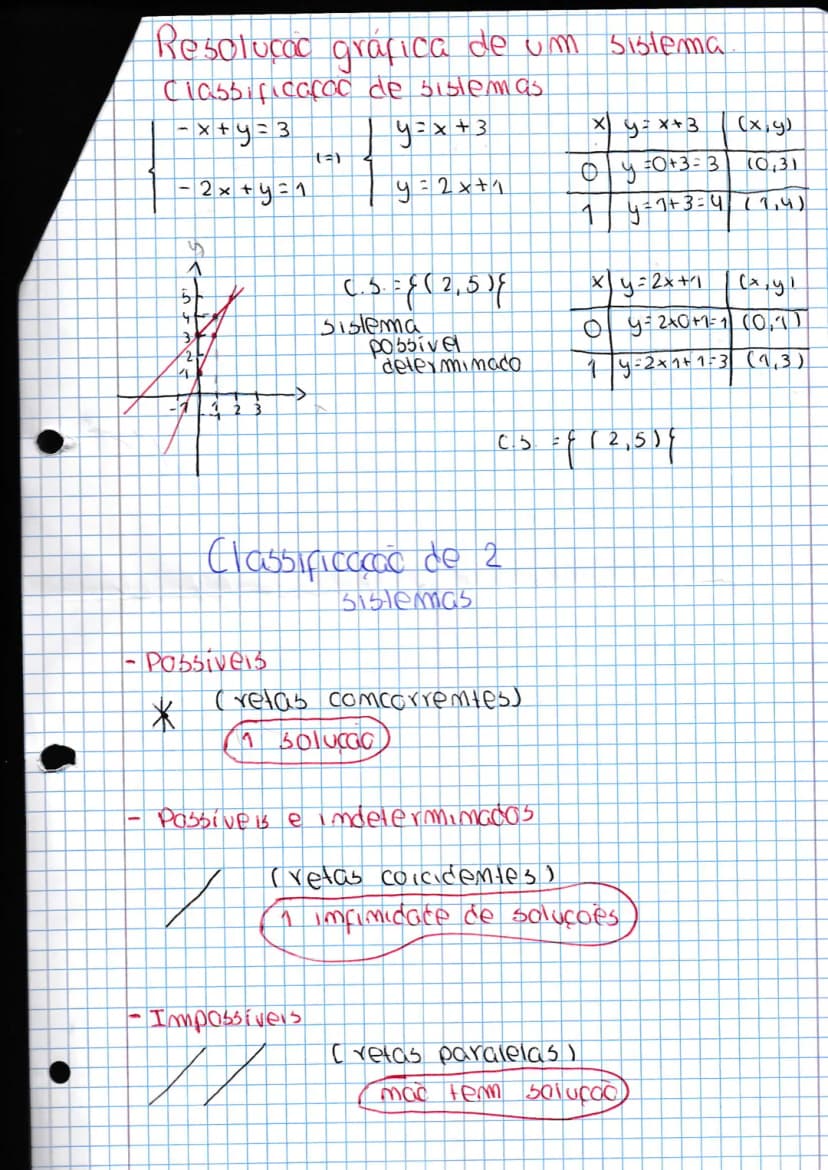 Resolução gráfica de um sistema.
Classificação de sistemas
- x + y = 3 (=) y = x + 3
- 2x + y = 1 y = 2x + 1
x y = x+3 (x,y)
0 y=0+3=3 (0,3)
1 y=1+3=4 (1,4)
y
5
4
3
2
1
-1 1 2 3
-1
C.S. = {(2,5)}
sistema
possível
determinado
x y = 2x+1 (x,y)
0 y=2x0+1=1 (0,1)
1 y=2x1+1=3 (1,3)
C.S. = {(2,5)}
Classificação de 2
sistemas
- Possíveis
(retas comcorremtes)
1 solução
- Possíveis e imdetermimados
(retas coicidemtes)
1 imfimidate de soluções
- Impossíveis
(retas paralelas)
mão tem solução